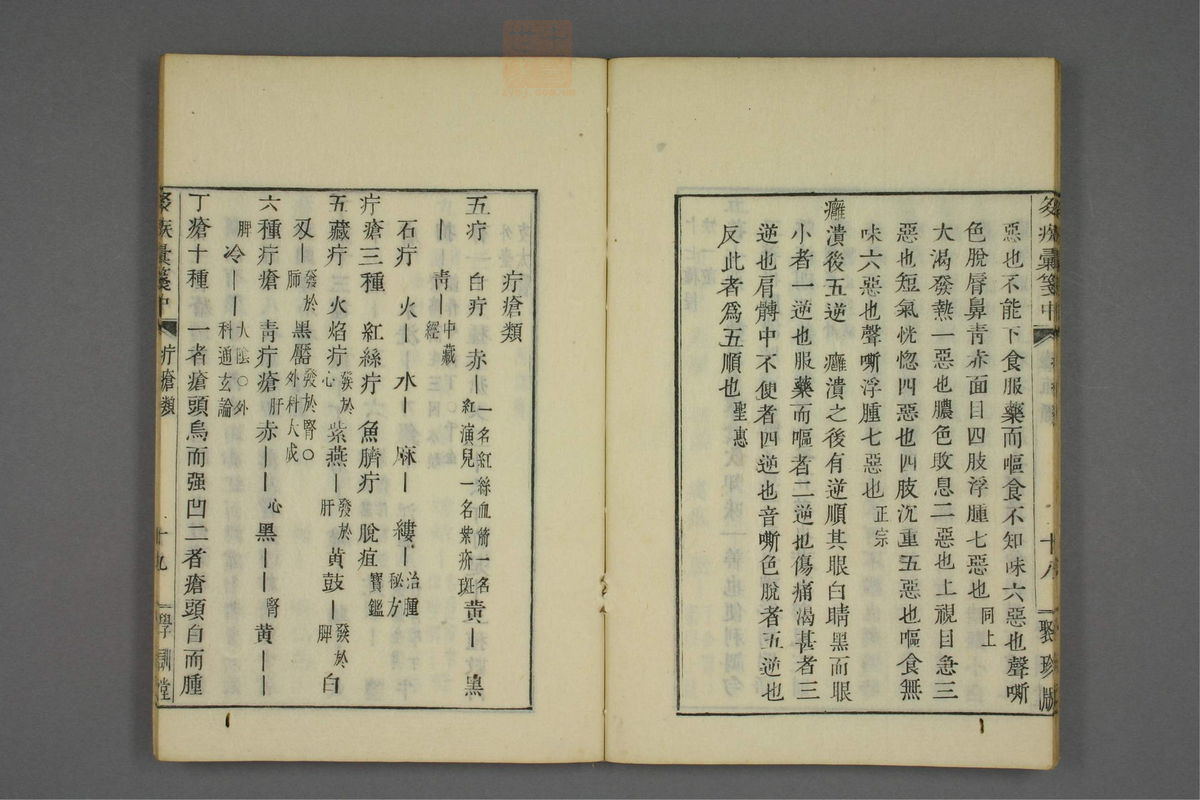 惡也不能下食服藥而嘔食不知味六惡也聲嘶
色脫唇鼻靑赤面目四肢浮腫七惡也同上
大渴發熱一惡也膿色敗息二惡也上視目急三
惡也短氣恍惚四惡也四肢沉重五惡也嘔食無
味六惡也聲嘶浮腫七惡也正宗
癰潰後五逆 癰潰之後有逆順其眼白睛黑而眼
小者一逆也服藥而嘔者二逆也傷痛渴甚者三
逆也肩髆中不便者四逆也音嘶色脫者五逆也
反此者爲五順也聖惠
十八 聚珍版
疔瘡類
五疔 白疔 赤｜一名紅絲血箭一名紅演兒一名紫疥斑黄｜黑
｜靑｜中藏經
石疔 火｜水｜麻｜縷｜治腫秘方
疔瘡三種 紅絲疔 魚臍疔 脫疽寶鑑
五藏疔 火焰疔發於心紫燕｜發於肝黄鼓｜發於脾白
刄｜發於肺黑靨發於腎○外科大成
六種疔瘡 靑疔瘡肝赤｜｜心黑｜｜腎黄｜｜
脾冷大陰○外科通玄論
丁瘡十種 一者瘡頭烏而强凹二者瘡頭白而腫
疾彙箋中 疔瘡類 十九 學訓堂